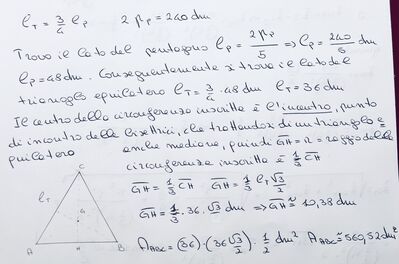 l_T = 3/4 l_P 2 p_P = 240 dm
Trovo il lato del pentagono l_P = 2p_P/5 => l_P = 240/5 dm
l_P = 48 dm. Conseguentemente si trova il lato del
triangolo equilatero l_T = 3/4 · 48 dm l_T = 36 dm
Il centro della circonferenza inscritta è l'incentro, punto
di incontro delle bisettrici, che trattandosi di un triangolo e-
quilatero anche mediane, quindi GH = r = raggio della
circonferenza inscritta = 1/3 CH
GH = 1/3 CH GH = 1/3 l_T √3/2
GH = 1/3 · 36 · √3/2 dm => GH ≅ 10,38 dm
A_ABC = (36) · (36 √3/2) · 1/2 dm² A_ABC ≅ 560,52 dm²
C
l_T
G
A H B